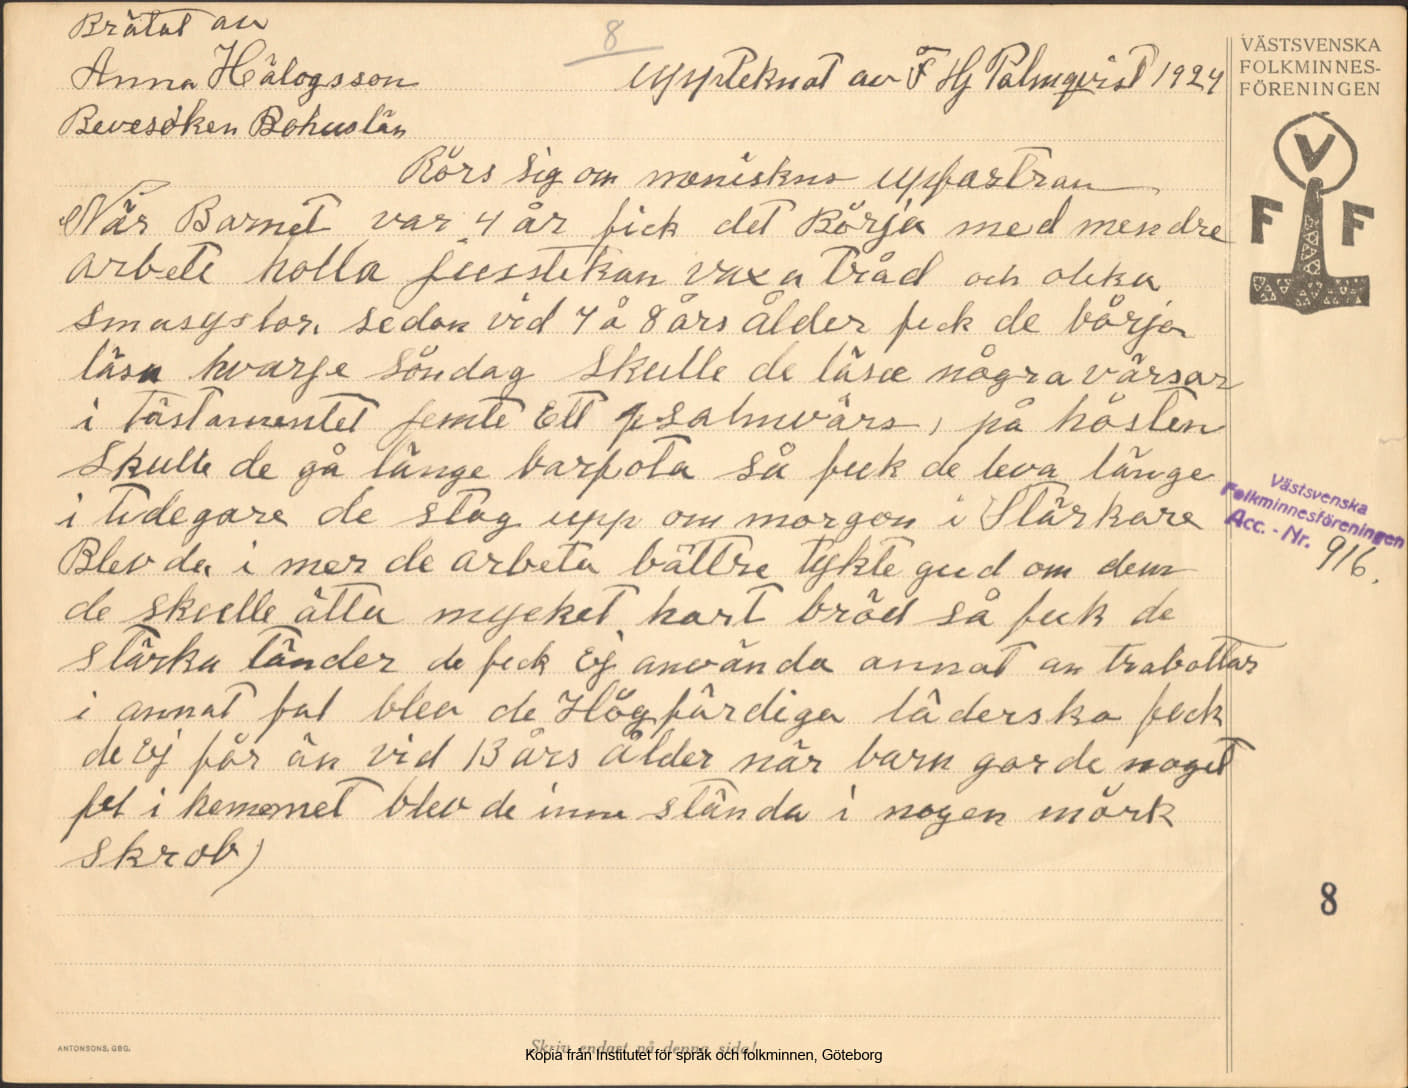 Brätat au
Anna Hälogsson
Bevesöken Bohuslän
8
Uppteknat av F Hj Palmqvist 1924
Rörs sig om meniskns uppfastran
När Barnet var 4 år fick det Börja med mendre
arbete holla jusstikan vaxa tråd och olika
smasyslor. sedan vid 7 å 8 års ålder feck de börja
läsa hvarje söndag skulle de läsa några värsar
i tästamentet jemte Ett psalmvärs, på hösten
skulle de gå länge barfota så feck de leva länge
i tidegare de stag upp om morgon i Stärkare
Blev de, i mer de arbeta bättre tykte gud om dem
de skulle ätta mycket hart bröd så feck de
stärka tänder de feck Ej använda annat än trabottar
i annat fal blev de Högfärdiga läderska feck
de Ej för än vid 13 års ålder när barn gorde noget
fel i hememet blev de inne stända i nogen mörk
skrob)
VÄSTSVENSKA
FOLKMINNES-
FÖRENINGEN
V
F F
Västsvenska
Folkminnesföreningen
Acc. - Nr. 916.
8
ANTONSONS, GBG.
Skriv endast på denna sida!
Kopia från Institutet för språk och folkminnen, Göteborg